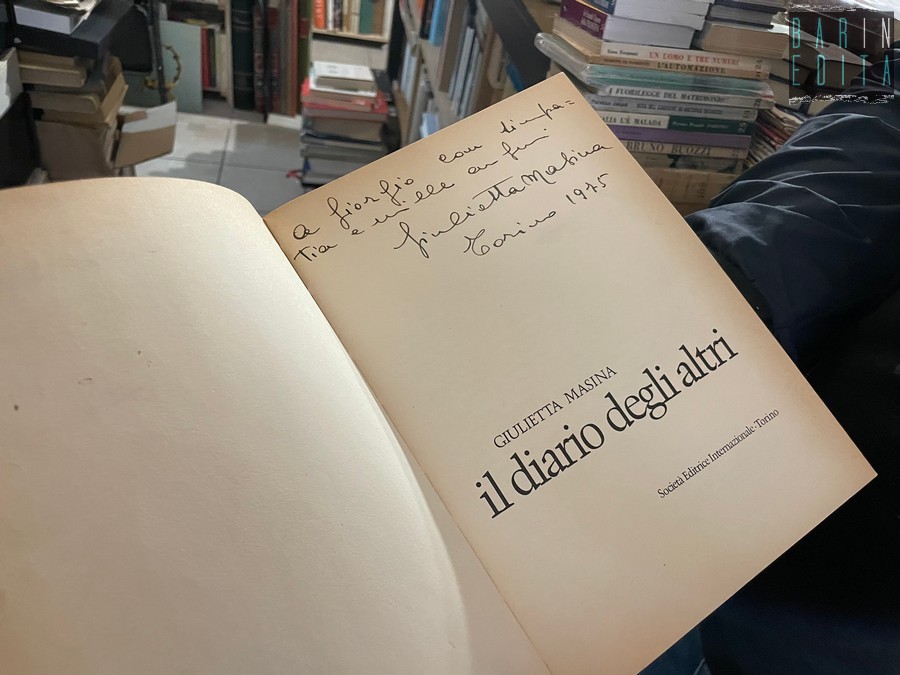 BARIN
EDITA
UN UOMO E TRE NUMERI
L'AUTOMAZIONE
FUORILEGGE DEL MATRIMONIO
ALIA U'E MALADA
BRUNO BUOZZI
a Giorgio con simpa=
tia e mille auguri
Giulietta Masina
Torino 1975
GIULIETTA MASINA
il diario degli altri
Società Editrice Internazionale·Torino